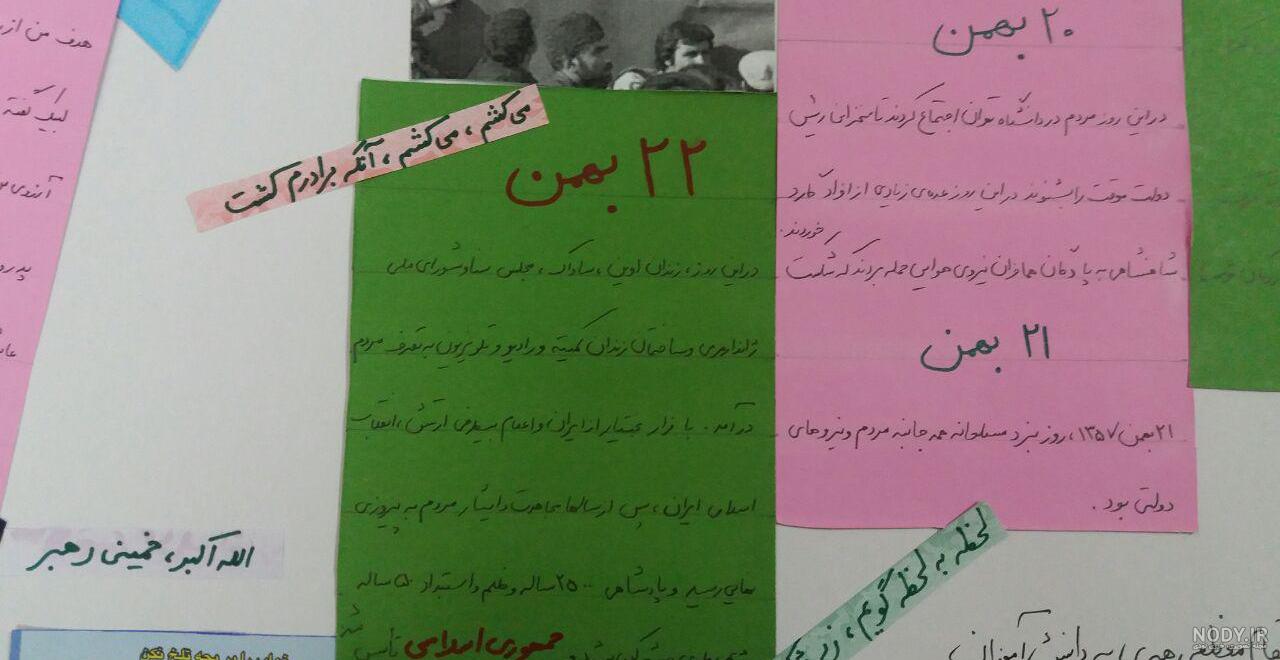 ۲۰ بهمن
در این روز مردم در دانشگاه تهران اجتماع کردند تا سخنرانی رئیس
دولت موقت را بشنوند در این روز عده‌ی زیادی از افراد گارد
شاهنشاهی به پادگان همافران نیروی هوایی حمله بردند که شکست
خوردند.
۲۱ بهمن
۲۱ بهمن ۱۳۵۷، روز نبرد مسلحانه همه جانبه مردم و نیروهای
دولتی بود.
می‌کشم، می‌کشم، آنکه برادرم کشت
۲۲ بهمن
در این روز، زندان اوین، ساواک، مجلس سنا و شورای ملی
ژاندارمری و ساختمان زندان کمیته و رادیو و تلویزیون به تصرف مردم
درآمد. با فرار بختیار از ایران و اعلام بیطرفی ارتش، انقلاب
اسلامی ایران، پس از سالها مجاهدت و ایثار مردم به پیروزی
نهایی رسید و پادشاهی ۲۵۰۰ ساله و ظلم و استبداد ۵۰ ساله
جمهوری اسلامی تأسیس شد
لحظه به لحظه گویم،
هدف من از
لبیک گفته
آرزوی
پدر و
الله اکبر، خمینی رهبر
NODY.IR